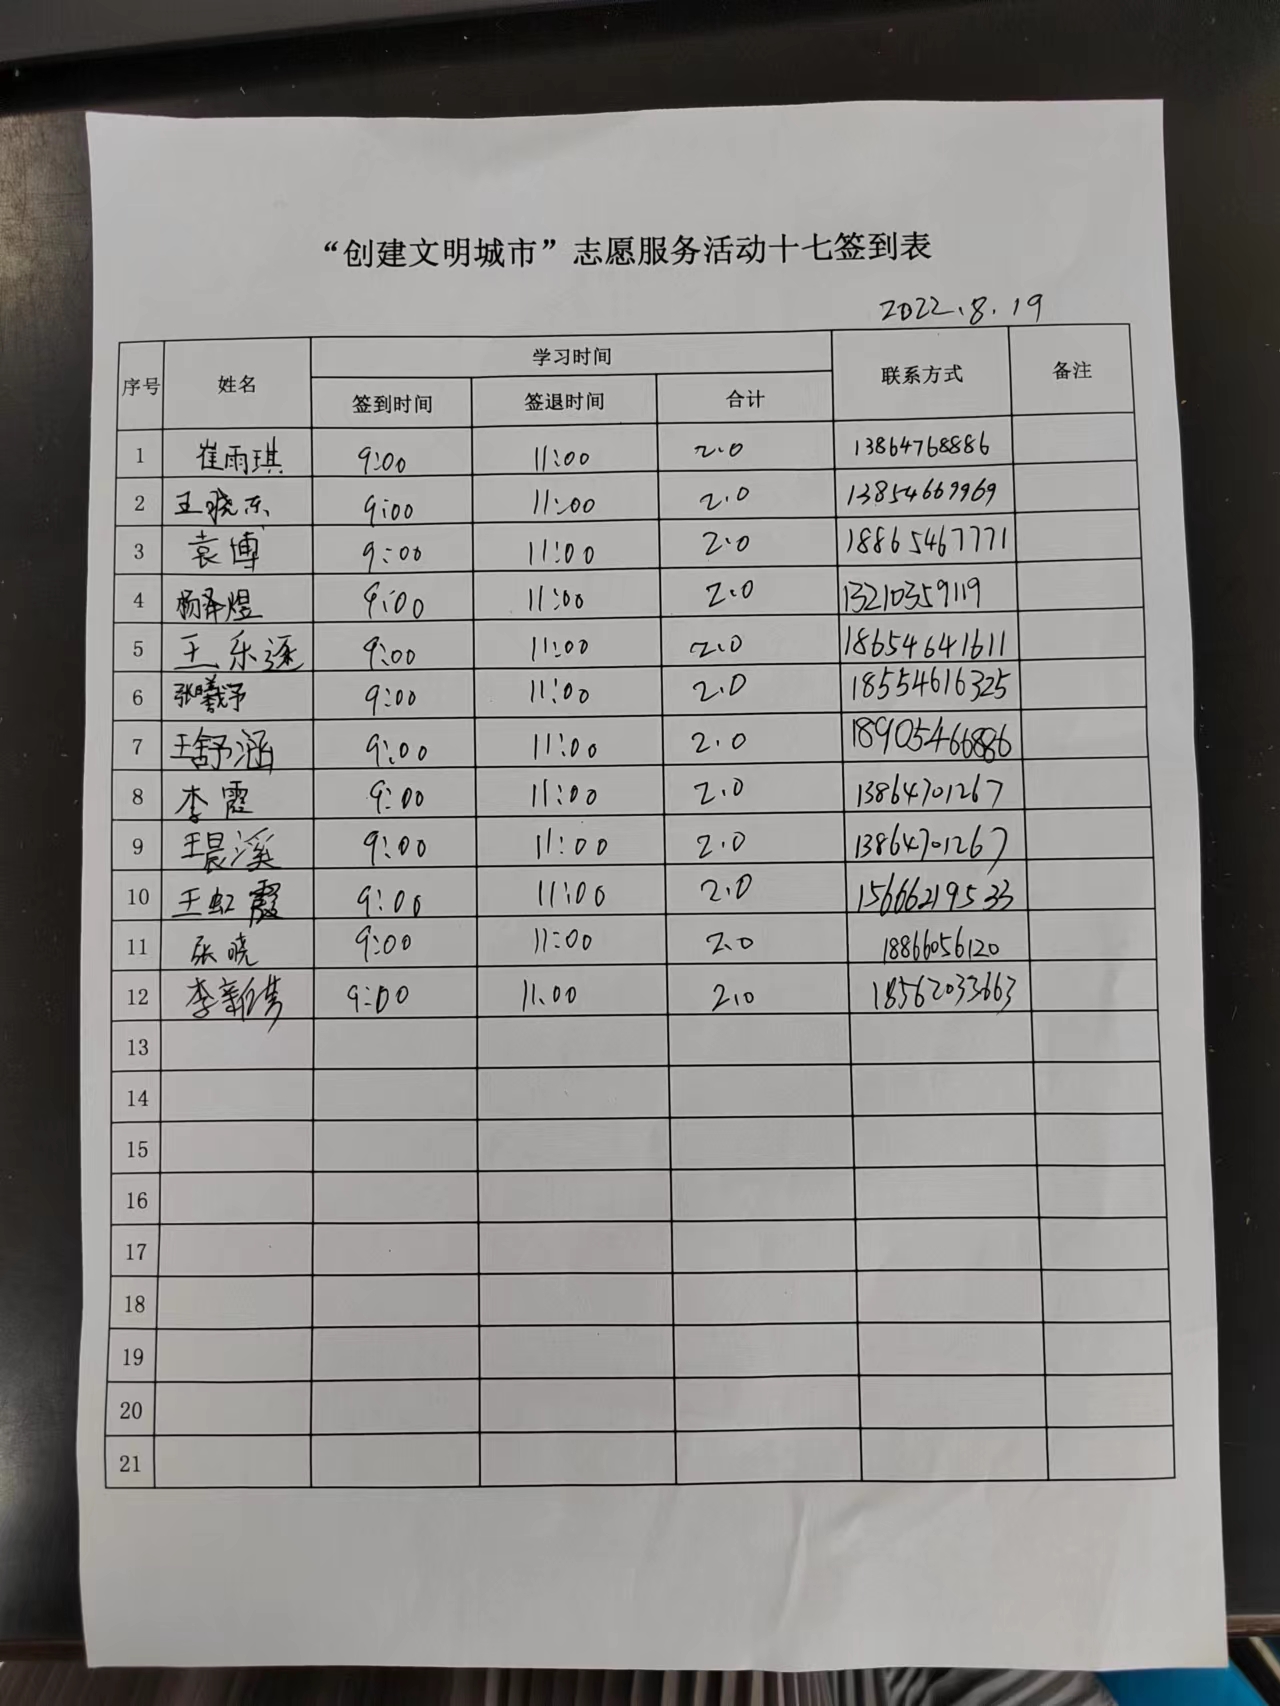 “创建文明城市”志愿服务活动十七签到表
2022.8.19
序号 姓名 学习时间 联系方式 备注
签到时间 签退时间 合计
1 崔雨琪 9:00 11:00 2.0 13864768886
2 王晓东 9:00 11:00 2.0 13854669969
3 袁博 9:00 11:00 2.0 18865467771
4 杨泽煜 9:00 11:00 2.0 13210359119
5 王乐 9:00 11:00 2.0 18654641611
6 张曦予 9:00 11:00 2.0 18554616325
7 王舒涵 9:00 11:00 2.0 18905466886
8 李霞 9:00 11:00 2.0 13864701267
9 王晨溪 9:00 11:00 2.0 13864701267
10 王虹霞 9:00 11:00 2.0 15666219533
11 张晓 9:00 11:00 2.0 18866056120
12 李新隽 9:00 11.00 2.0 18562033663
13
14
15
16
17
18
19
20
21